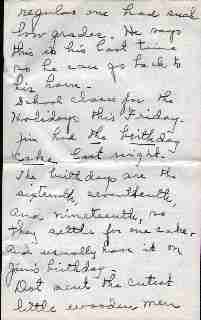 regular one had such
low grades. He says
this is his last time
so he can go back to
his home.
School closes for the
Holidays this Friday.
Jim had the birthday
cake last night.
The birthdays are the
sixteenth, seventeenth,
and nineteenth, so
they settle for one cake.
and usually have it on
Jim's birthday.
Dot sent the cutest
little wooden men